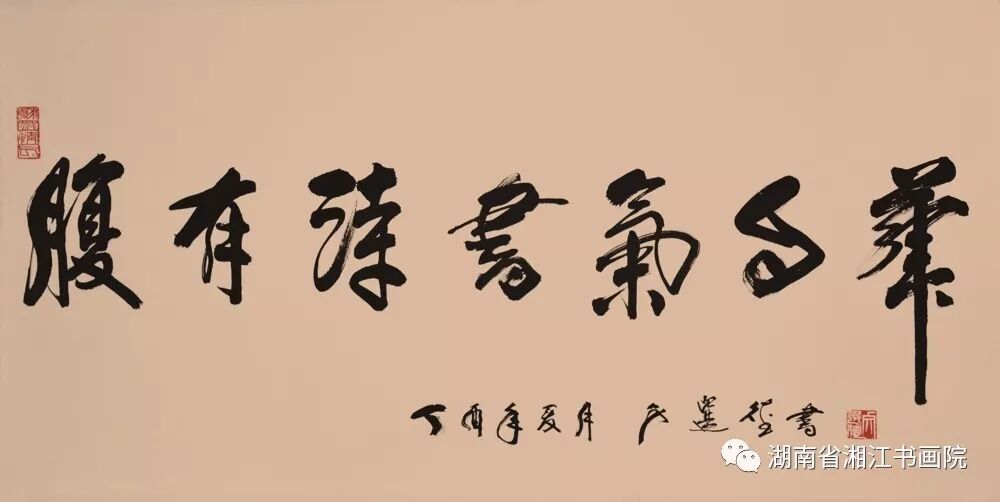 腹有詩書氣自華
丁酉年夏月 選 書
湖南省湘江书画院